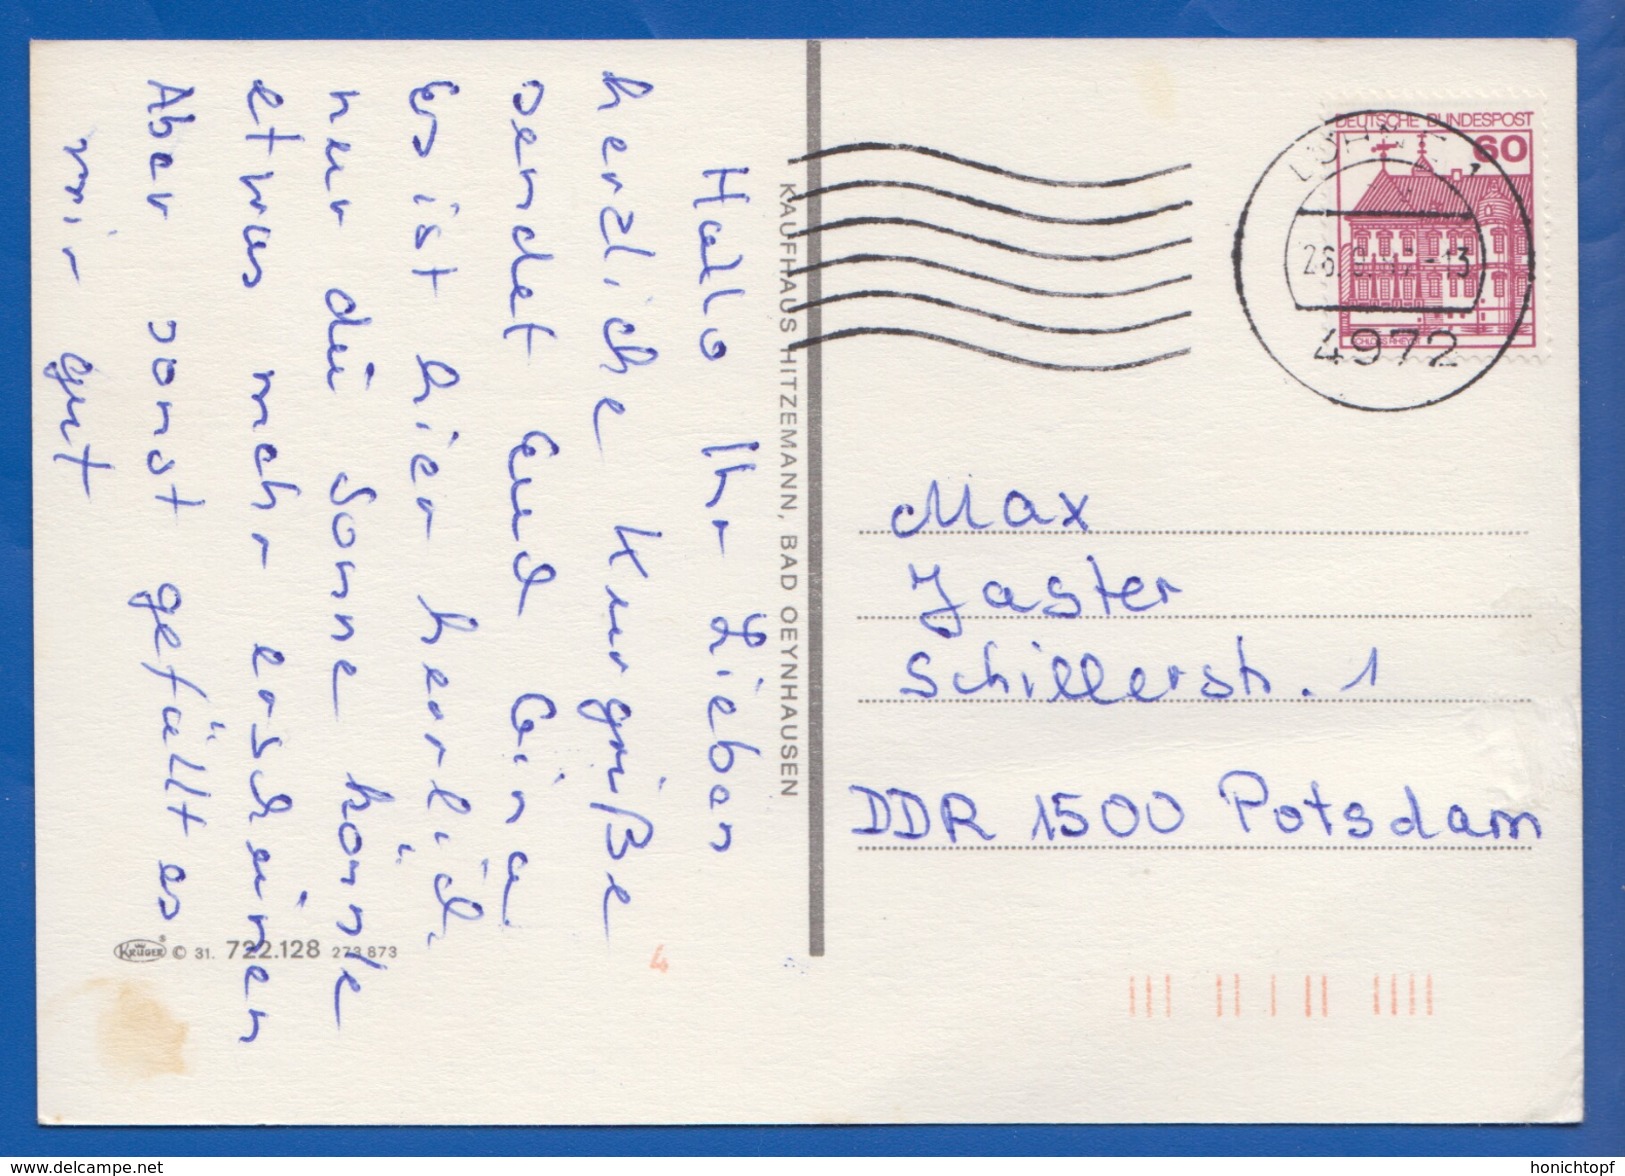 Hallo Ihr Lieben
herzliche Kurgrüße
sendet Euch
Es ist hier herrlich
nur die Sonne könnte
etwas mehr erscheinen
Aber sonst gefällt es
mir gut
KAUFHAUS HITZEMANN, BAD OEYNHAUSEN
KRÜGER ® © 31. 722.128 273.873
4
DEUTSCHE BUNDESPOST
60
LÖHNE 1
-13
4972
Max
Jaster
Schillerstr. 1
DDR 1500 Potsdam
www.delcampe.net
honichtopf